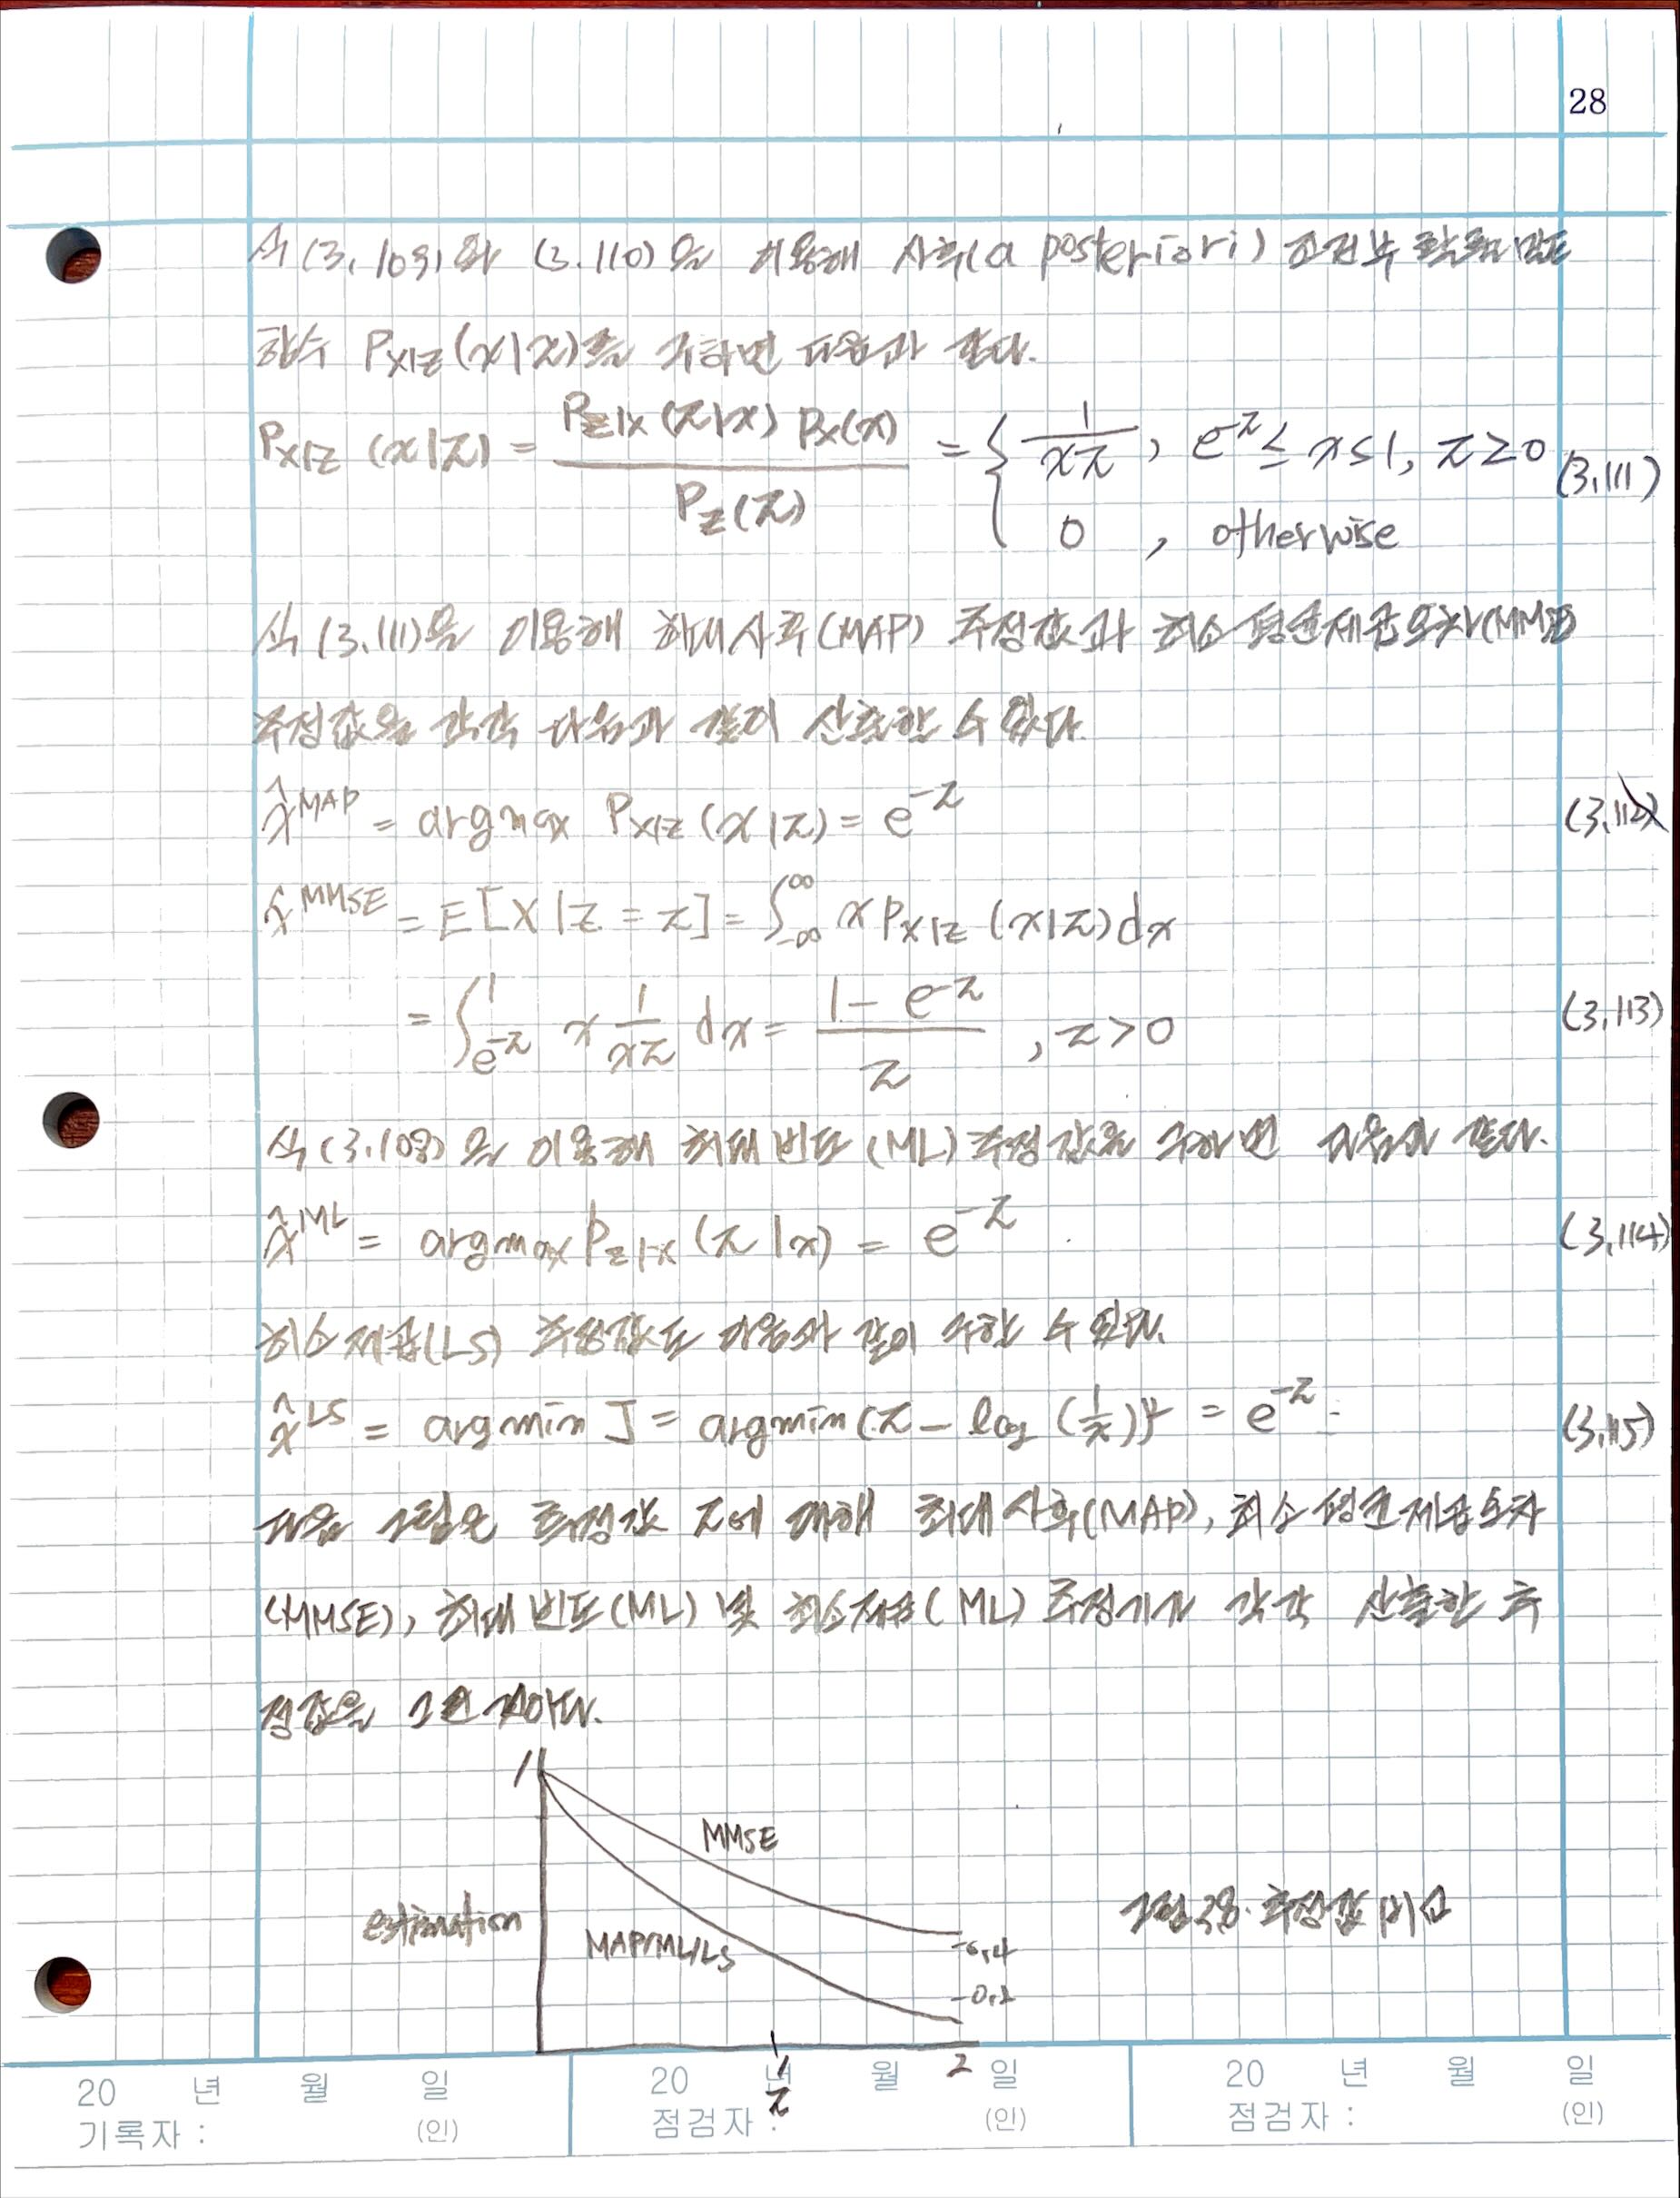 28
식 (3.109)와 (3.110)을 이용해 사후(a posteriori) 조건부 확률밀도
함수 P_{X|Z}(x|z)를 구하면 다음과 같다.
P_{X|Z}(x|z) = \frac{P_{Z|X}(z|x) P_X(x)}{P_Z(z)} = { \frac{1}{xz}, e^{-z} ≤ x ≤ 1, z ≥ 0 (3.111)
0 , otherwise
식 (3.111)을 이용해 최대사후(MAP) 추정값과 최소평균제곱오차(MMSE)
추정값을 각각 다음과 같이 산출할 수 있다.
\hat{x}^{MAP} = argmax P_{X|Z}(x|z) = e^{-z} (3.112)
\hat{x}^{MMSE} = E[X|Z = z] = ∫_{-∞}^{∞} x P_{X|Z}(x|z)dx
= ∫_{e^{-z}}^{1} x \frac{1}{xz} dx = \frac{1 - e^{-z}}{z}, z > 0 (3.113)
식 (3.108)을 이용해 최대빈도(ML) 추정값을 구하면 다음과 같다.
\hat{x}^{ML} = argmax P_{Z|X}(z|x) = e^{-z} (3.114)
최소제곱(LS) 추정값도 다음과 같이 구할 수 있다.
\hat{x}^{LS} = argmin J = argmin(z - log(\frac{1}{x}))² = e^{-z} (3.115)
다음 그림은 측정값 z에 대해 최대사후(MAP), 최소평균제곱오차
(MMSE), 최대빈도(ML) 및 최소제곱(ML) 추정기가 각각 산출한 추
정값을 그린 것이다.
1
MMSE
estimation
MAP/ML/LS
-0.4
-0.2
그림 3.8. 추정값 비교
1
2
z
20 년 월 일
기록자 : (인)
20 년 월 일
점검자 : (인)
20 년 월 일
점검자 : (인)